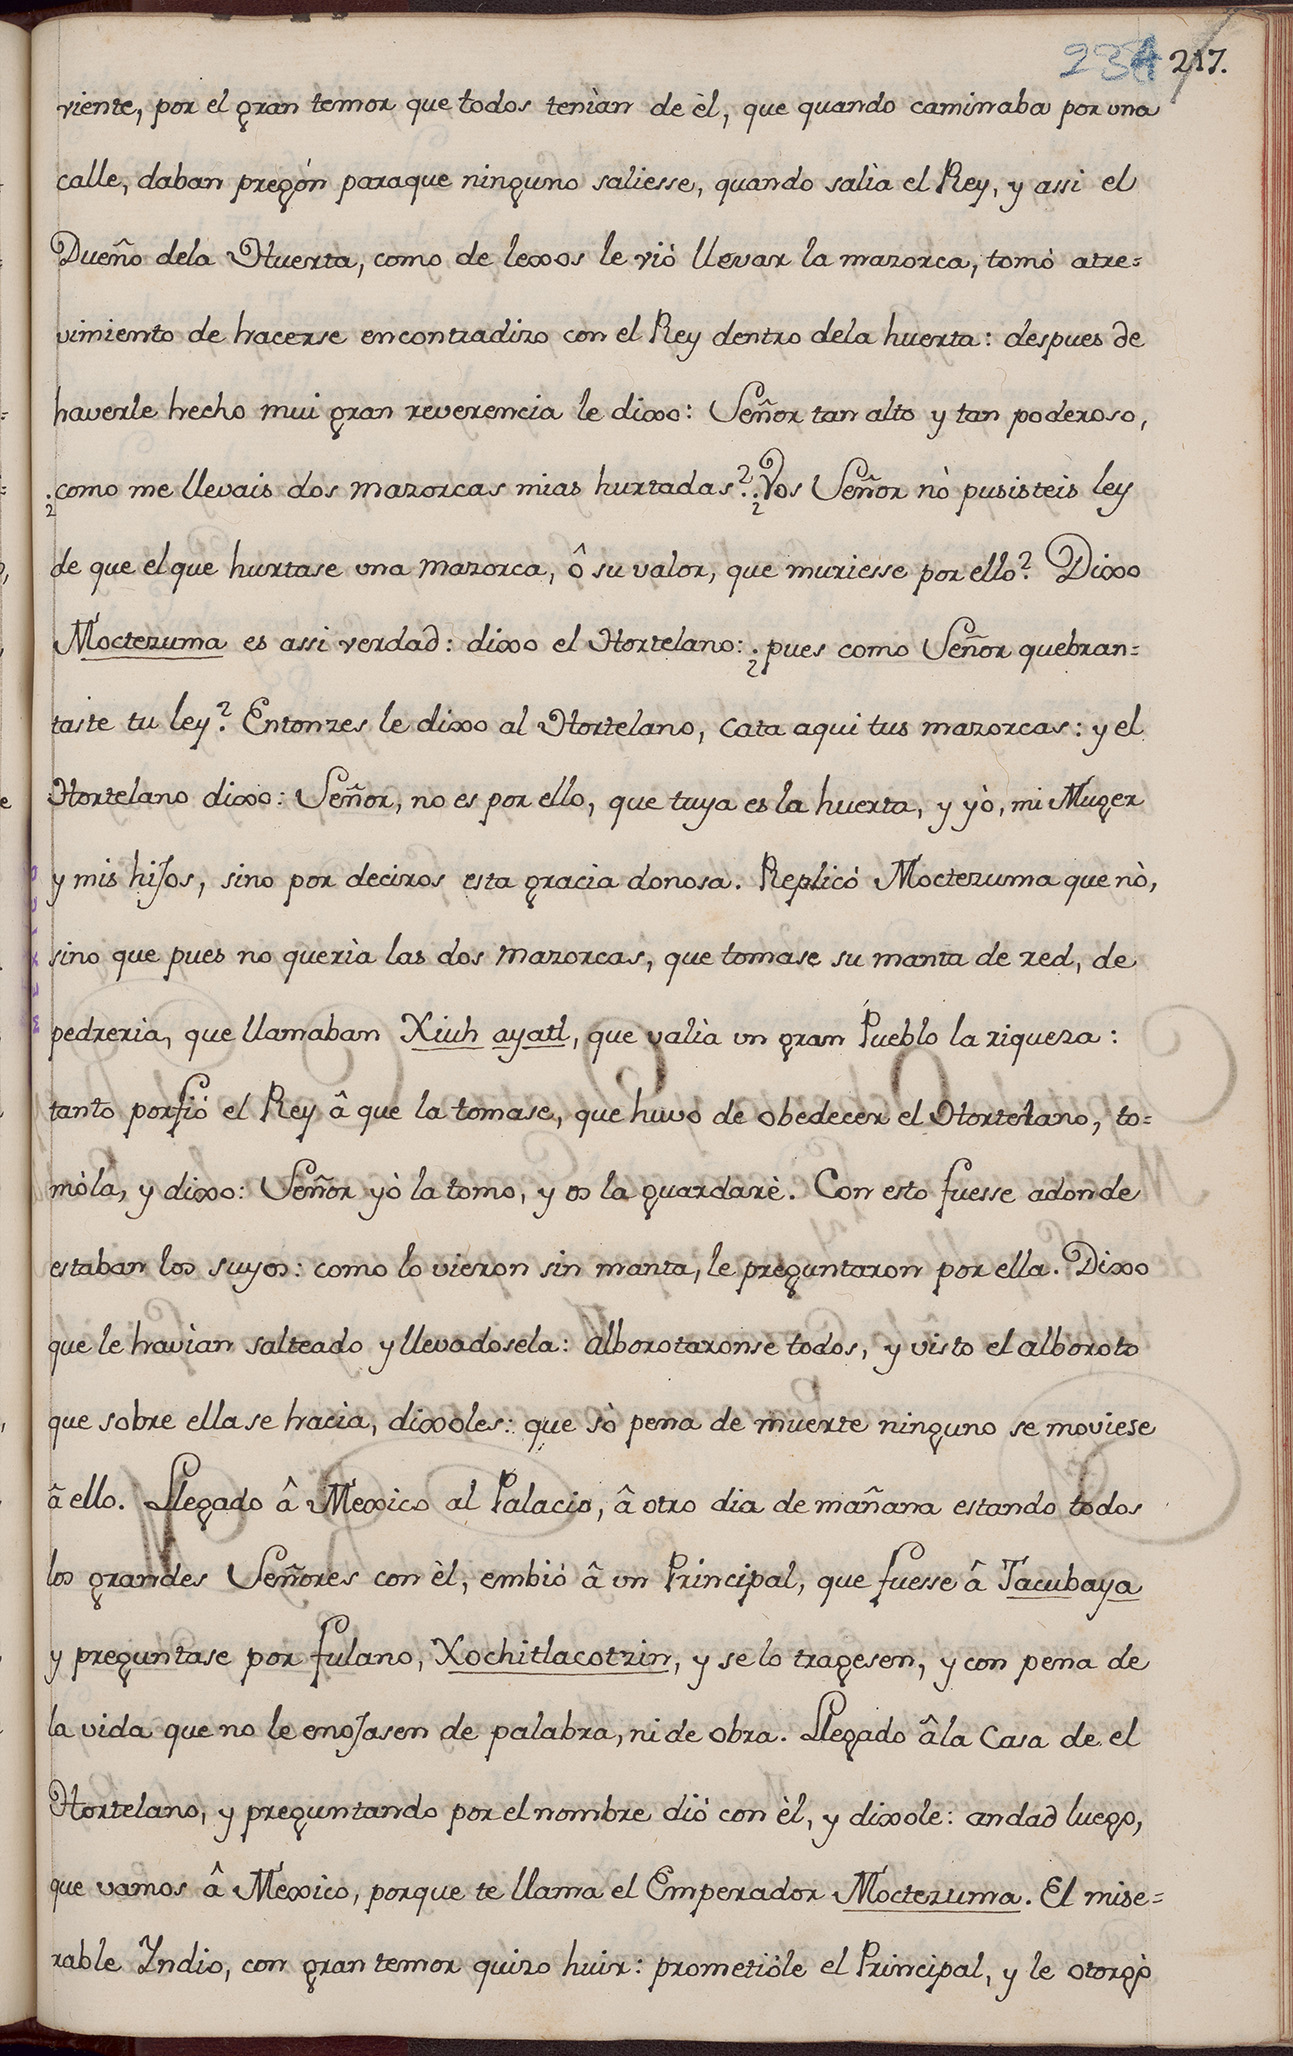 234 217.
viente, por el gran temor que todos tenìan de èl, que quando caminaba por una
calle, daban pregón paraque ninguno saliesse, quando salìa el Rey, y assi el
Dueño dela Huerta, como de lexos le vió llevar la mazorca, tomó atre=
vimiento de hacerse encontradizo con el Rey dentro dela huerta: despues de
haverle hecho mui gran reverencia le dixo: Señor tan alto y tan poderoso,
¿como me llevais dos mazorcas mias hurtadas? ¿Vos Señor nò pusisteis ley
de que el que hurtase una mazorca, ô su valor, que muriesse por ello? Dixo
Moctezuma es assi verdad: dixo el Hortelano: ¿pues como Señor quebran=
taste tu ley? Entonzes le dixo al Hortelano, cata aqui tus mazorcas: y el
Hortelano dixo: Señor, no es por ello, que tuya es la huerta, y yò, mi Muger
y mis hijos, sino por deciros esta gracia donosa. Replicó Moctezuma que nò,
sino que pues no querìa las dos mazorcas, que tomase su manta de red, de
pedrerìa, que llamaban Xiuh ayatl, que valìa un gran Pueblo la riqueza:
tanto porfió el Rey â que la tomase, que huvo de obedecer el Hortelano, to=
mòla, y dixo: Señor yò la tomo, y os la guardarè. Con esto fuesse adonde
estaban los suyos: como lo vieron sin manta, le preguntaron por ella. Dixo
que le havìan salteado y llevadosela: alborotaronse todos, y visto el alboroto
que sobre ella se hacìa, dixoles: que sò pena de muerte ninguno se moviese
â ello. Llegado â Mexico al Palacio, â otro dia de mañana estando todos
los grandes Señores con èl, embió â un Principal, que fuesse â Tacubaya
y preguntase por fulano, Xochitlacotzin, y se lo tragesen, y con pena de
la vida que no le enojasen de palabra, ni de obra. Llegado âla Casa de el
Hortelano, y preguntando por el nombre dió con èl, y dixole: andad luego,
que vamos â Mexico, porque te llama el Emperador Moctezuma. El mise=
rable Yndio, con gran temor quizo huir: prometióle el Principal, y le otorgò